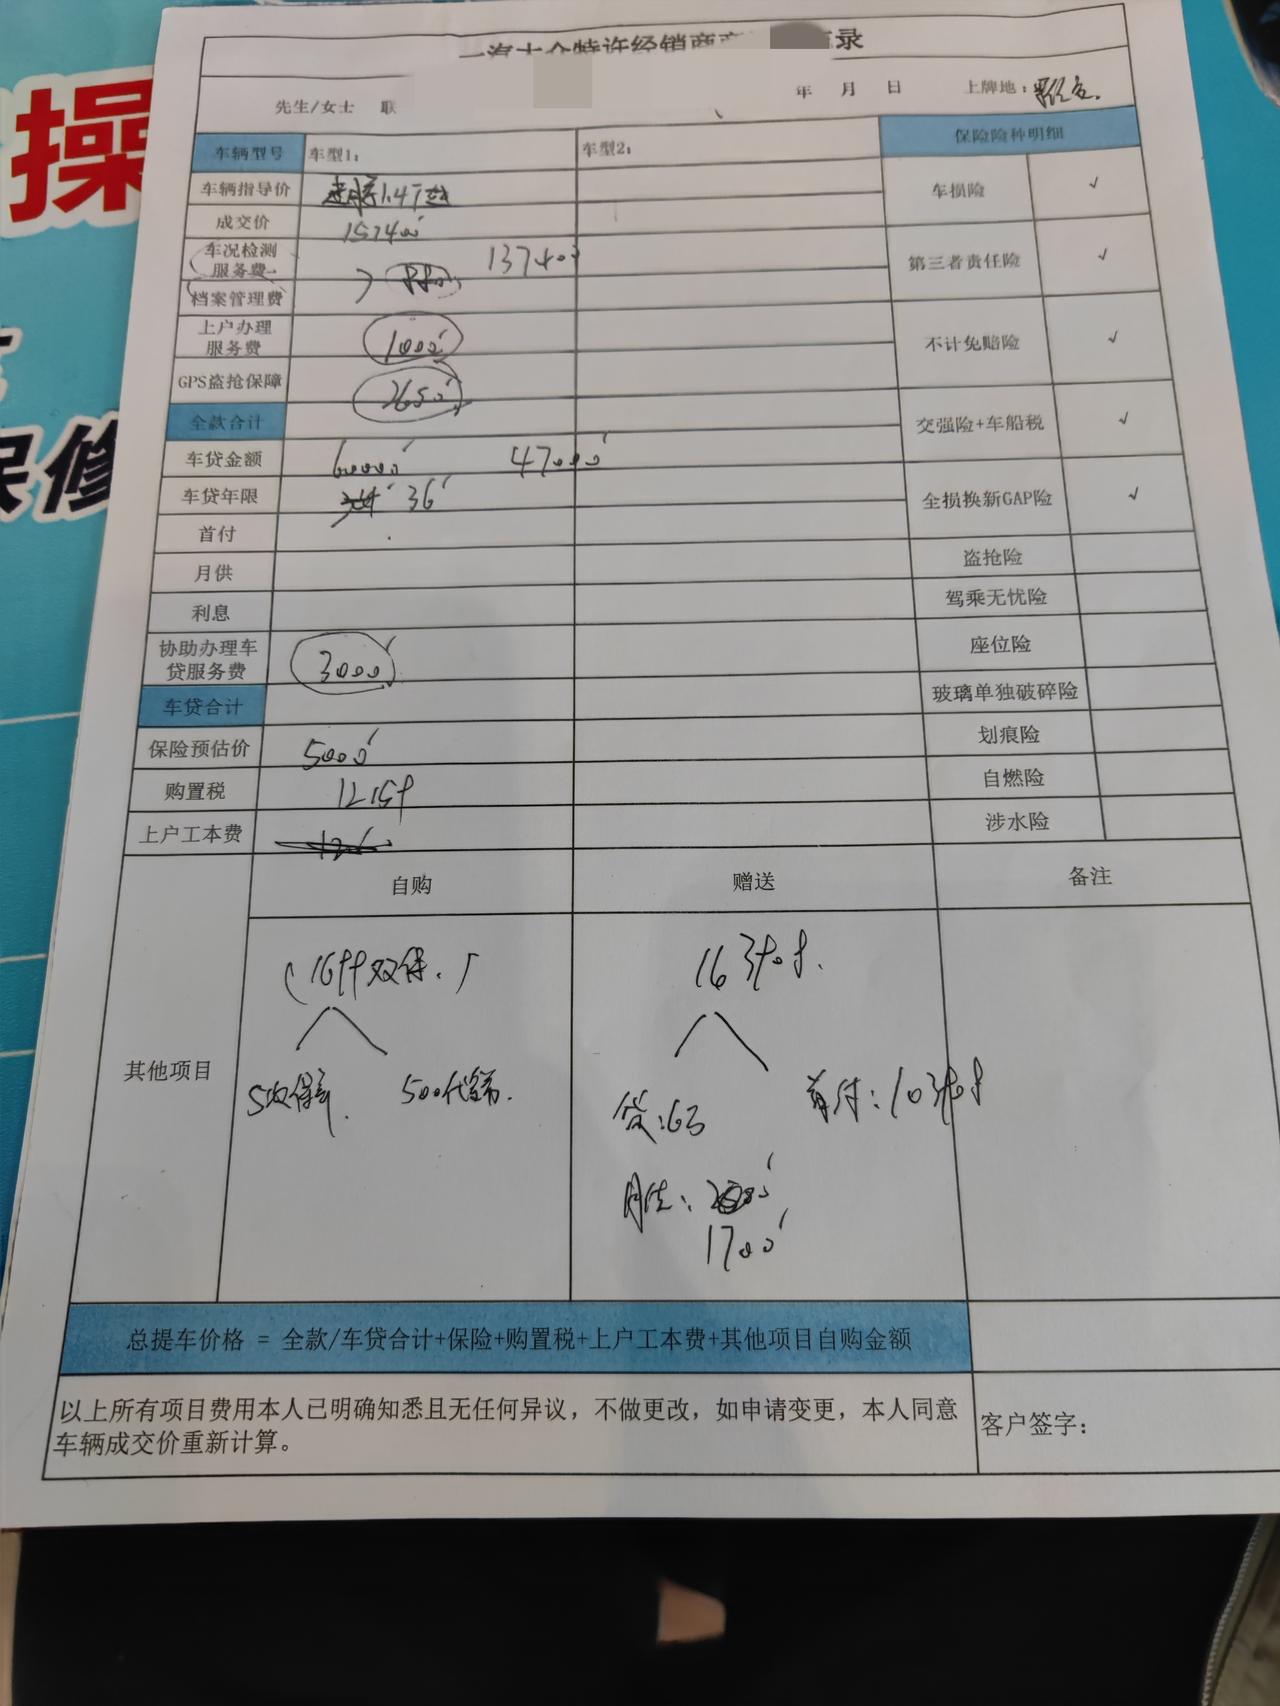 操
保修
一汽大众特许经销商商 录
先生/女士 联 年 月 日 上牌地:
车辆型号 车型1: 车型2: 保险险种明细
车辆指导价 速腾1.4T 车损险 ✓
成交价 157400
车况检测服务费 137400 第三者责任险 ✓
档案管理费
上户办理服务费 1000 不计免赔险 ✓
GPS盗抢保障 2650
全款合计 交强险+车船税 ✓
车贷金额 60000 47000
车贷年限 36 全损换新GAP险 ✓
首付
月供 盗抢险
利息 驾乘无忧险
协助办理车贷服务费 3000 座位险
车贷合计 玻璃单独破碎险
保险预估价 5000 划痕险
购置税 1215 自燃险
上户工本费 涉水险
自购 赠送 备注
其他项目
双保. 16
5次保养. 500代金券.
贷:6万 首付:10
月供:
1700
总提车价格 = 全款/车贷合计+保险+购置税+上户工本费+其他项目自购金额
以上所有项目费用本人已明确知悉且无任何异议，不做更改，如申请变更，本人同意
车辆成交价重新计算。
客户签字: